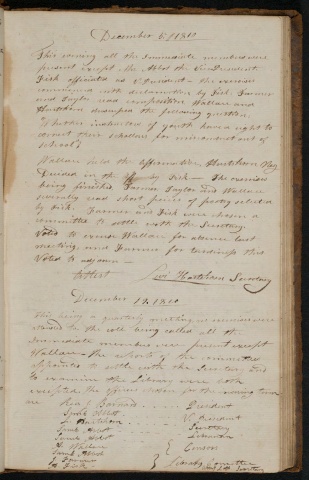 December 5, 1810
This evening all the Immediate members were
present except Mr. Abbot the Vice President
Fisk officiated as President — the exercises
commenced with declamation by Fisk, Farmer
and Taylor read composition Wallace and
Hutchison discussed the following question,
Whether instructors of youth have a right to
correct their schollars for misconduct out of
school?
Wallace held the affirmative, Hutchison Neg
Decided in the by Fisk — The exercises
being finished, Farmer Taylor and Wallace
severally read short pieces of poetry selected
by Fisk. Farmer and Fisk were chosen a
committee to settle with the Secretary
Voted to excuse Wallace for absence last
meeting, and Farmer for tardiness that
Voted to adjourn —
Attest Hutchison Secretary
December 12, 1810
This being a quarterly meeting
to the role being called all the
Immediate members were present except
Wallace — The reports of the committee
appointed to settle with the Secretary and
to examine the Library were both
accepted, the officers chosen for the ensuing term
are President
Saml Abbot V. President
Hutchison Secretary
Saml Abbot
Saml Abbot Librarian
Censors
Saml Abbot
J. Farmer Library Committee
Fisk